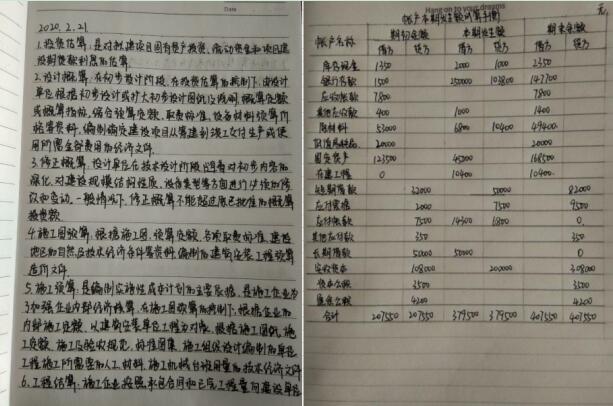 Date
2020.2.21
1.投资估算:是对拟建项目固定资产投资、流动资金和项目建
设期贷款利息的估算。
2.设计概算:在初步设计阶段,在投资估算的控制下,由设计
单位根据初步设计或扩大初步设计图纸及说明、概算定额
或概算指标,综合预算定额、取费标准、设备材料预算价
格等资料,编制确定建设项目从筹建到竣工交付生产或使
用所需全部费用的经济文件。
3.修正概算:设计单位在技术设计阶段,随着对初步内容的
深化,对建设规模、结构性质、设备类型等方面进行必要的修
改和变动,一般情况下,修正概算不能超过原已批准的概算
投资额
4.施工图预算:根据施工图、预算定额、各项取费标准、建设
地区的自然及技术经济条件等资料编制的建筑安装工程预算
造价文件
5.施工预算:是编制实施性成本计划的主要依据,是施工企业为
了加强企业内部经济核算,在施工图预算的控制下,根据企业的
内部施工定额,以建筑安装单位工程为对象,根据施工图纸、施
工定额、施工及验收规范、标准图集、施工组织设计编制的单位
工程施工所需要的人工、材料、施工机械台班用量的技术经济文件
6.工程结算:施工企业按照承包合同和已完工程量向建设单位
Hang on to your dreams
帐户本期发生额试算平衡 元
帐户名称 期初余额 本期发生 期末余额
借方 贷方 借方 贷方 借方 贷方
库存现金 1350 2000 1000 2350
银行存款 1500 250000 103800 147700
应收帐款 7800 7800
其他应收款 400 1000 1400
原材料 53000 6800 10400 49400
20000 20000
固定资产 123500 45000 168500
在建工程 0 10400 10400
短期借款 32000 50000 82000
应付票据 2000 7500 9500
应付帐款 7500 14300 6800 0
其他应付款 350 350
长期借款 50000 50000 0
实收资本 108000 200000 308000
资本公积 3500 3500
盈余公积 4200 4200
合计 207550 207550 379500 379500 407550 407550